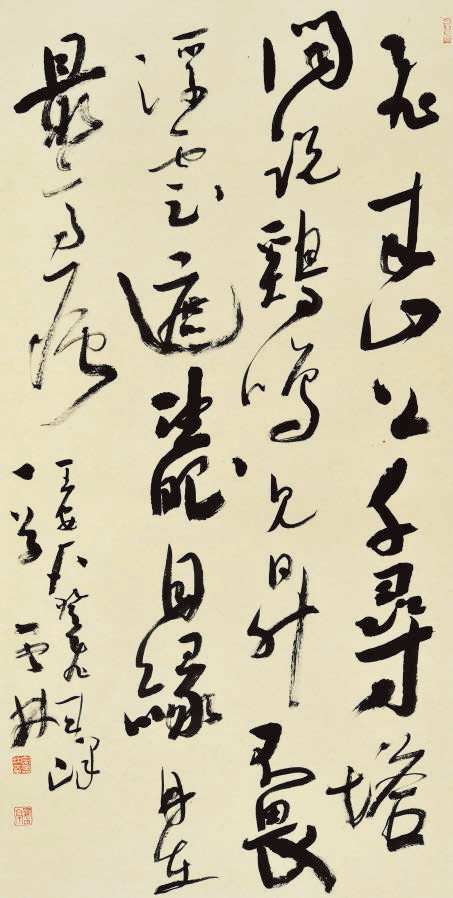 飛来山上千尋塔
聞説鷄鳴見日升不畏
浮雲遮望眼自緣身在
最高層
王安石登飛来峰
一首